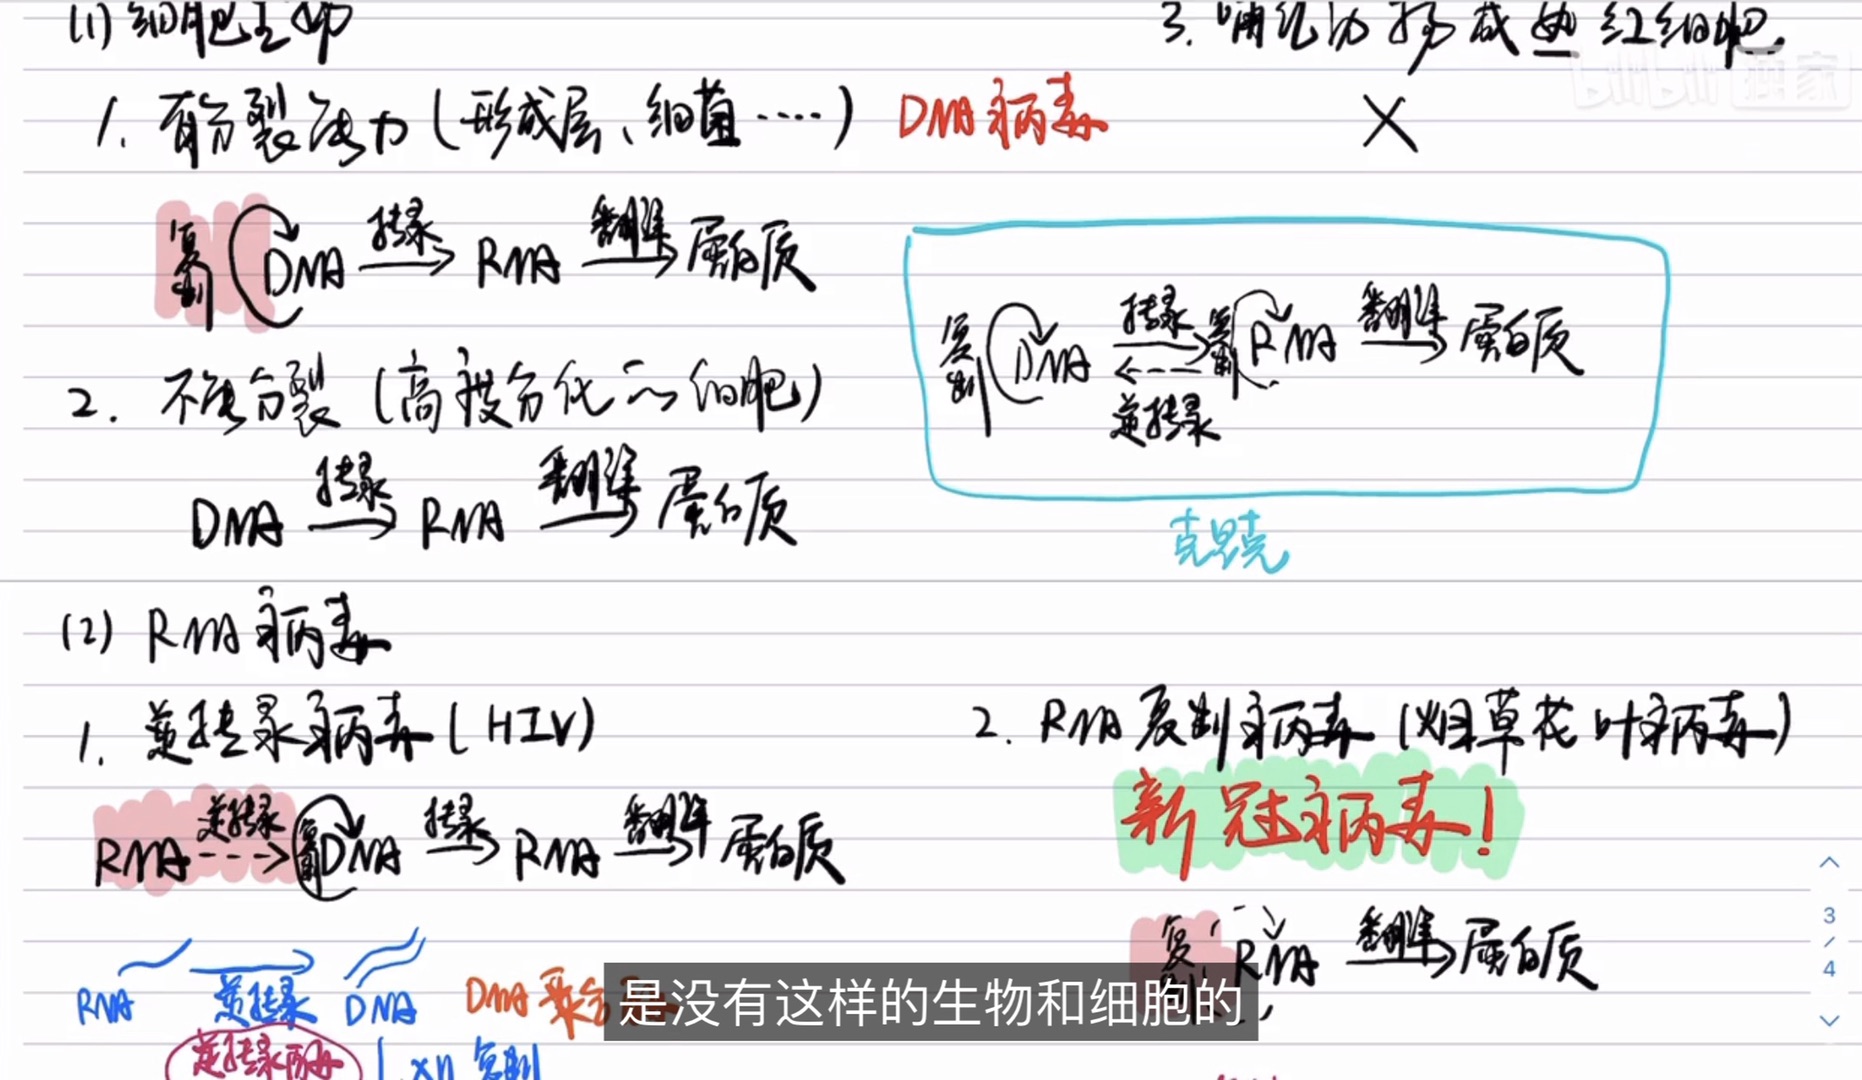 (1) 细胞生命
3. 哺乳动物成熟红细胞.
×
1. 有分裂能力(形成层、细菌……) DNA病毒
复制 DNA 转录 RNA 翻译 蛋白质
2. 不能分裂(高度分化的细胞)
DNA 转录 RNA 翻译 蛋白质
复制 DNA 转录 逆转录 复制 RNA 翻译 蛋白质
克里克
(2) RNA病毒
1. 逆转录病毒(HIV)
RNA 逆转录 复制 DNA 转录 RNA 翻译 蛋白质
RNA 逆转录 DNA DNA聚合
逆转录酶
×n 复制
2. RNA复制病毒(烟草花叶病毒)
新冠病毒!
复制 RNA 翻译 蛋白质
是没有这样的生物和细胞的
bilibili 独家
3
/
4